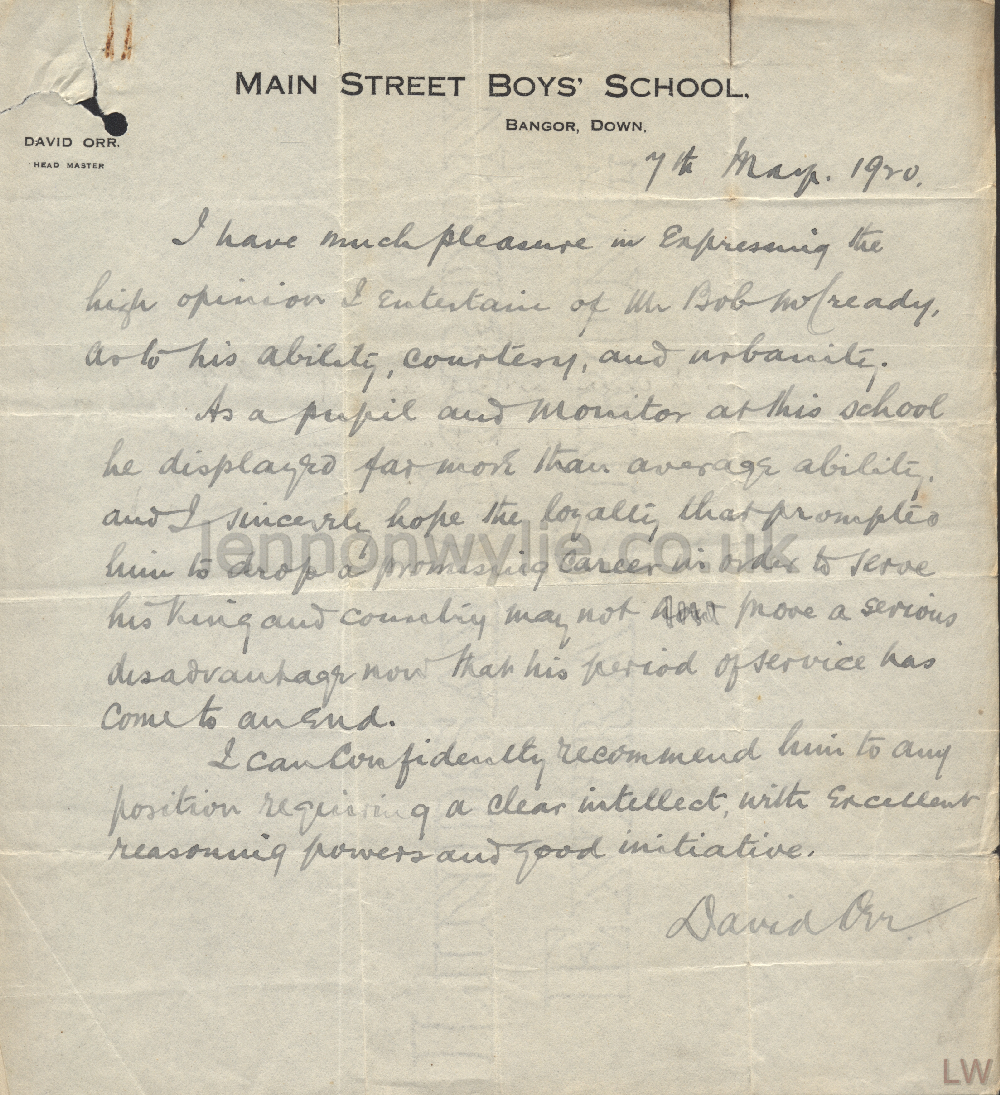 MAIN STREET BOYS' SCHOOL.
BANGOR, DOWN.
DAVID ORR.
HEAD MASTER
7th May. 1920.
I have much pleasure in Expressing the
high opinion I Entertain of Mr Bob McCready,
as to his ability, courtesy, and urbanity.
As a pupil and Monitor at this school
he displayed far more than average ability,
and I sincerely hope the loyalty that prompted
him to drop a promising career in order to serve
his King and country may not prove a serious
disadvantage now that his period of service has
come to an End.
I can Confidently recommend him to any
position requiring a clear intellect, with Excellent
reasoning powers and good initiative.
David Orr
lennonwylie.co.uk
LW